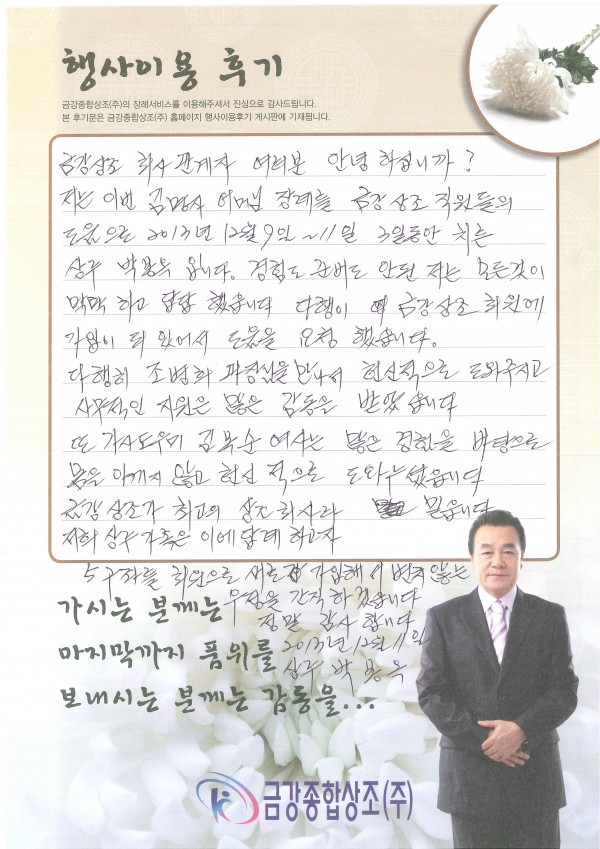 행사이용 후기
금강종합상조(주)의 장례서비스를 이용해주셔서 진심으로 감사드립니다.
본 후기문은 금강종합상조(주) 홈페이지 행사이용후기 게시판에 기재됩니다.
금강상조 회사 관계자 여러분 안녕 하십니까?
저는 이번 김명자 어머님 장례를 금강상조 직원들의
도움으로 2013년 12월 9일 ~ 11일 3일동안 치른
상주 박용욱 입니다. 경험도 준비도 안된 저는 모든것이
막막 하고 답답 했습니다 다행이 금강상조 회원에
가입이 되 있어서 도움을 요청 했습니다.
다행히 조병희 과장님을 만나서 헌신적으로 도와주시고
사무적인 지원은 많은 감동을 받았습니다
또 가사도우미 김복순 여사는 많은 경험을 바탕으로
몸을 아끼지 않고 헌신 적으로 도와주셨습니다
금강상조가 최고의 상조회사라 믿습니다
저희 상주 가족은 이에 답례 하고자
5구좌를 회원으로 서로 가입해서 변치않는
우정을 간직하겠습니다
정말 감사 합니다
2013년 12월 11일
상주 박용욱
가시는 분께는
마지막까지 품위를
보내시는 분께는 감동을...
금강종합상조(주)